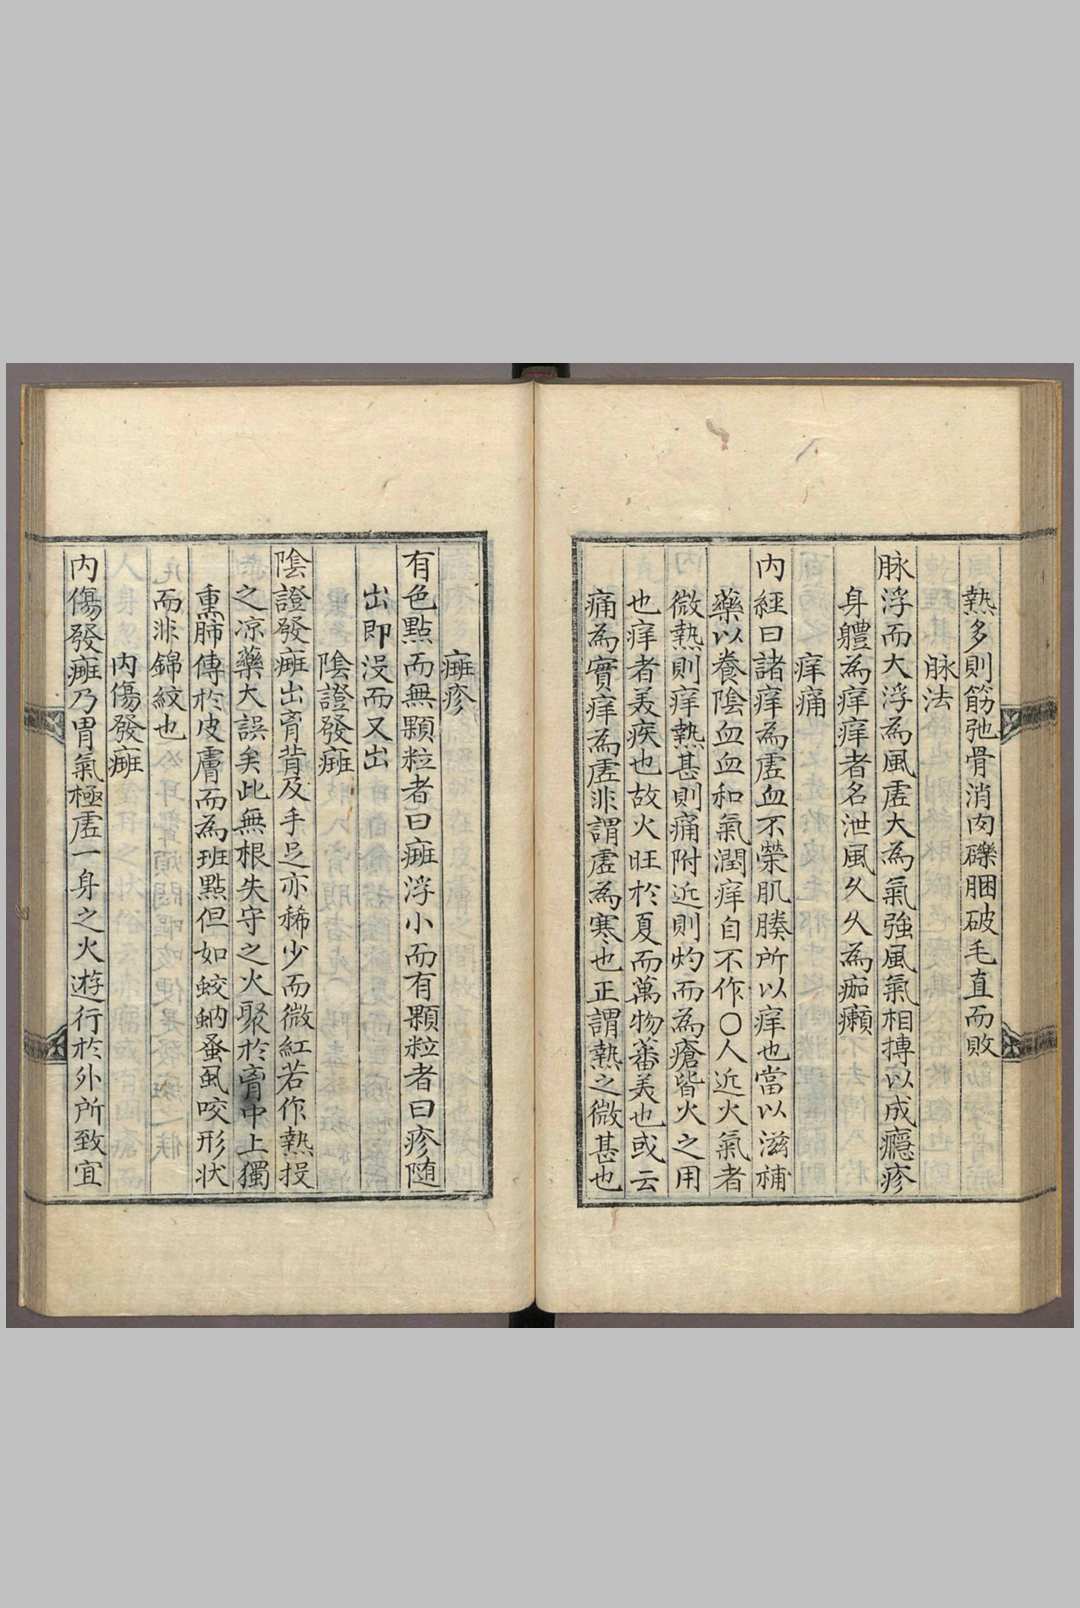 熱多則筋弛骨消肉礫䐃破毛直而敗
脉法
脉浮而大浮為風虛大為氣強風氣相搏以成癮疹
身體為痒痒者名泄風久久為痂癩
痒痛
內經曰諸痒為虛血不榮肌腠所以痒也當以滋補
藥以養陰血血和氣潤痒自不作〇人近火氣者
微熱則痒熱甚則痛附近則灼而為瘡皆火之用
也痒者美疾也故火旺於夏而萬物蕃美也或云
痛為實痒為虛非謂虛為寒也正謂熱之微甚也
癍疹
有色點而無顆粒者曰癍浮小而有顆粒者曰疹随
出即沒而又出
陰證發癍
陰證發癍出胷背及手足亦稀少而微紅若作熱投
之凉藥大誤矣此無根失守之火聚於胷中上獨
熏肺傳於皮膚而為班點但如蚊蚋蚤虱咬形状
而非錦紋也
內傷發癍
內傷發癍乃胃氣極虛一身之火遊行於外所致宜